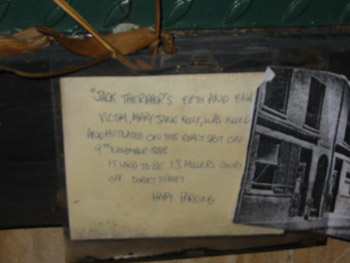 "JACK THE RIPPER'S FIFTH AND FINAL
VICTIM, MARY JANE KELLY, WAS KILLED
AND MUTILATED ON THIS EXACT SPOT ON
9TH NOVEMBER 1888
IT USED TO BE 13 MILLERS COURT
OFF DORSET STREET
HAPPY PARKING